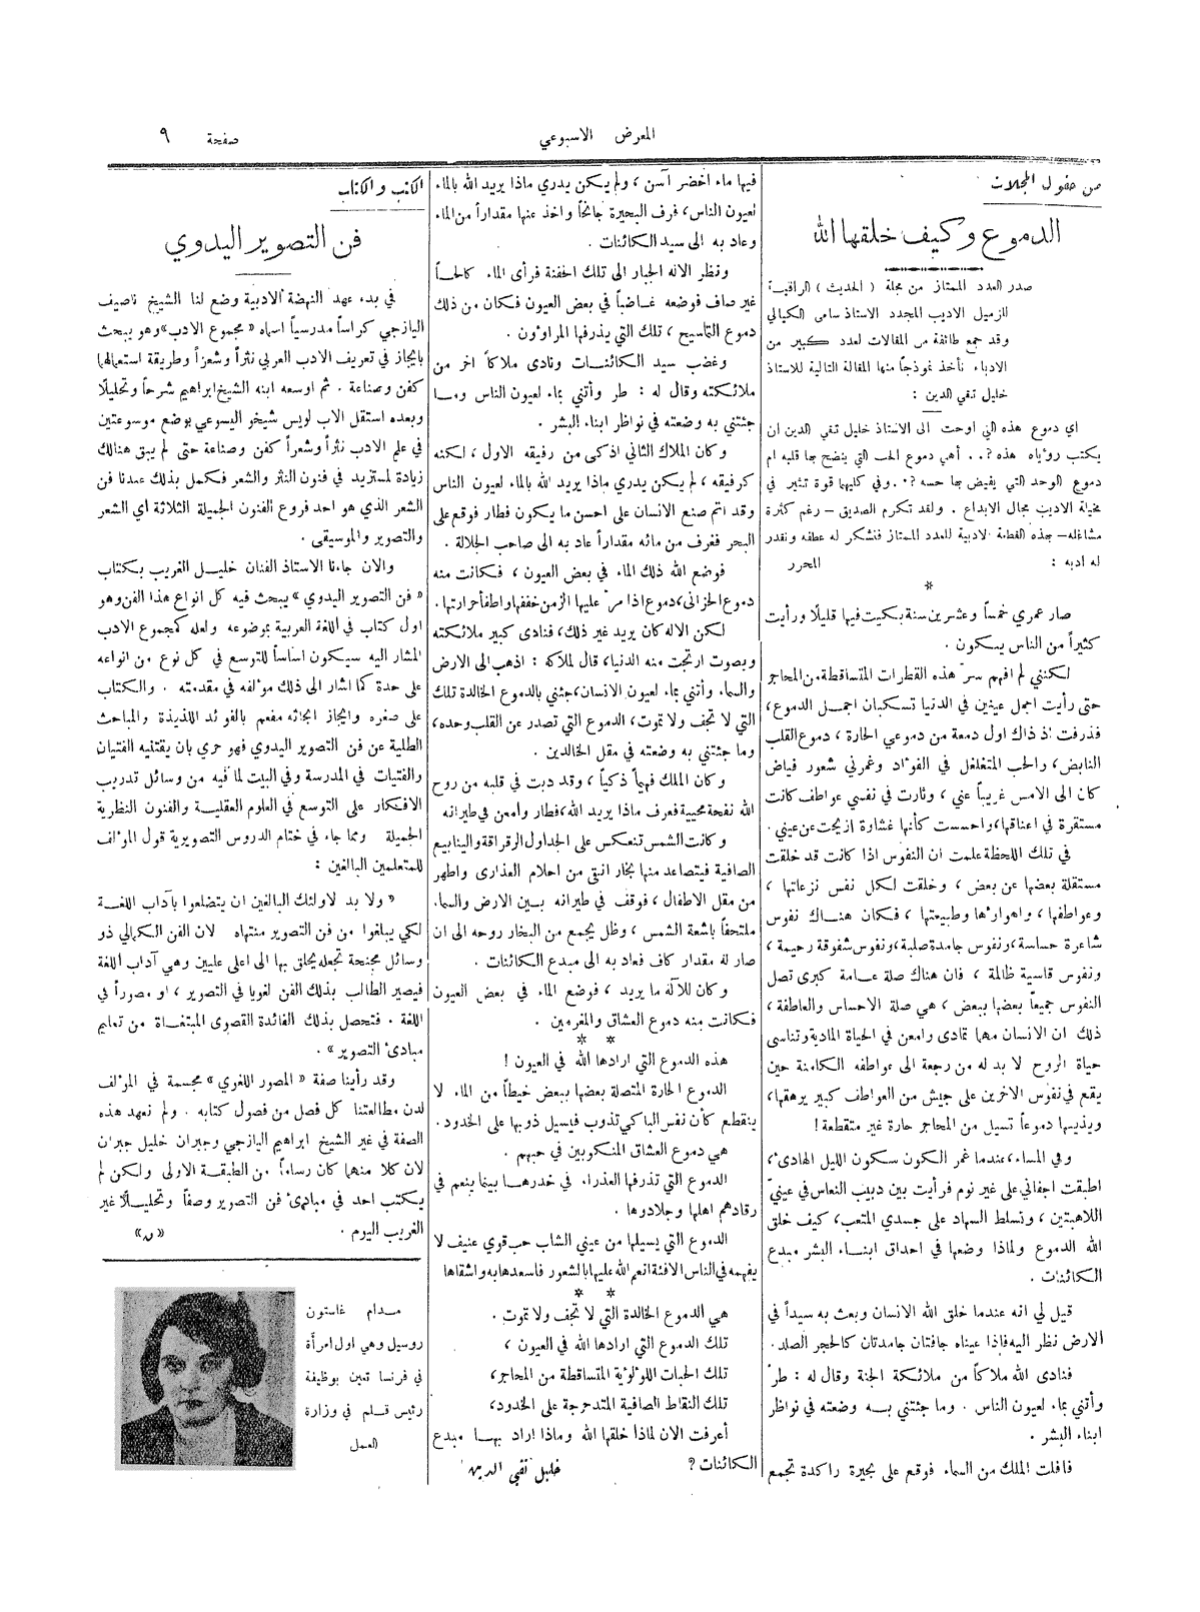 المعرض الاسبوعي
صفحة ٩
من حقول المجلات
الدموع وكيف خلقها الله
صدر العدد الممتاز من مجلة (الحديث) الراقية
للزميل الاديب المجدد الاستاذ سامي الكيالي
وقد جمع طائفة من المقالات لعدد كبير من
الادباء نأخذ نموذجاً منها المقالة التالية للاستاذ
خليل تقي الدين :
اي دموع هذه التي اوحت الى الاستاذ خليل تقي الدين ان
يكتب رؤياه هذه ?.. أهي دموع الحب التي ينضح بها قلبه ام
دموع الوحد التي يفيض بها حسه ?. وفي كليهما قوة تثير في
مخيلة الاديب مجال الابداع . ولقد تكرم الصديق – رغم كثرة
مشاغله – بهذه القطعة الادبية للعدد الممتاز فنشكر له عطفه ونقدر
له ادبه : المحرر
*
صار عمري خمساً وعشرين سنة بكيت فيها قليلاً ورأيت
كثيراً من الناس يبكون .
لكنني لم افهم سرّ هذه القطرات المتساقطة من المحاجر
حتى رأيت اجمل عينين في الدنيا تسكبان اجمل الدموع ،
فذرفت اذ ذاك اول دمعة من دموعي الحارة ، دموع القلب
النابض ، والحب المتغلغل في الفؤاد وغمرني شعور فياض
كان الى الامس غريباً عني ، وثارت في نفسي عواطف كانت
مستقرة في اعناقها ، واحسست كأنها غشارة ازيحت عن عيني .
في تلك اللحظة علمت ان النفوس اذا كانت قد خلقت
مستقلة بعضها عن بعض ، وخلقت لكل نفس نزعاتها ،
وعواطفها ، واهوارها وطبيعتها ، فكان هناك نفوس
شاعرة حساسة ، ونفوس جامدة صلبة ، ونفوس شفوقة رحيمة ،
ونفوس قاسية ظالمة ، فان هناك صلة عامة كبرى تصل
النفوس جميعاً بعضها ببعض ، هي صلة الاحساس والعاطفة ،
ذلك ان الانسان مهما تمادى وامعن في الحياة المادية وتناسى
حياة الروح لا بد له من رجعة الى عواطفه الكامنة حين
يقع في نفوس الاخرين على جيش من العواطف كبير يرهقها ،
ويذيبها دموعاً تسيل من المحاجر حارة غير متقطعة !
وفي المساء ، عندما غمر الكون سكون الليل الهادئ ،
اطبقت اجفاني على غير نوم فرأيت بين دبيب النعاس في عينيّ
اللاهبتين ، وتسلط السهاد على جسدي المتعب ، كيف خلق
الله الدموع ولماذا وضعها في احداق ابناء البشر مبدع
الكائنات .
قيل لي انه عندما خلق الله الانسان وبعث به سيداً في
الارض نظر اليه فاذا عيناه جافتان جامدتان كالحجر الصلد .
فنادى الله ملاكاً من ملائكة الجنة وقال له : طرْ
وأتني بماء لعيون الناس . وما جئتني به وضعته في نواظر
ابناء البشر .
فافلت الملك من السماء فوقع على بحيرة راكدة تجمع
فيها ماء اخضر آسن ، ولم يكن يدري ماذا يريد الله بالماء
لعيون الناس ، فرف البحيرة جانحاً واخذ عنها مقداراً من الماء
وعاد به الى سيد الكائنات .
ونظر الاله الجبار الى تلك الحفنة فرأى الماء كالحاً
غير صاف فوضعه غاضباً في بعض العيون فكان من ذلك
دموع التماسيح ، تلك التي يذرفها المراؤون .
وغضب سيد الكائنات ونادى ملاكاً اخر من
ملائكته وقال له : طر وأتني بماء لعيون الناس وما
جئتني به وضعته في نواظر ابناء البشر .
وكان الملاك الثاني اذكى من رفيقه الاول ، لكنه
كرفيقه ، لم يكن يدري ماذا يريد الله بالماء لعيون الناس
وقد اتم صنع الانسان على احسن ما يكون فطار فوقع على
البحر فغرف من مائه مقداراً عاد به الى صاحب الجلالة .
فوضع الله ذلك الماء في بعض العيون ، فكانت منه
دموع الحزانى ، دموع اذا مرّ عليها الزمن خففها واطفأ حرارتها .
لكن الاله كان يريد غير ذلك ، فنادى كبير ملائكته
وبصوت ارتجت منه الدنيا ، قال لملاكه : اذهب الى الارض
والسماء وأتني بماء لعيون الانسان ، جئني بالدموع الخالدة تلك
التي لا تجف ولا تموت ، الدموع التي تصدر عن القلب وحده ،
وما جئتني به وضعته في مقل الخالدين .
وكان الملك فهيماً ذكياً ، وقد دبت في قلبه من روح
الله نفحة محيية فعرف ماذا يريد الله ، فطار وأمعن في طيرانه
وكانت الشمس تنعكس على الجداول الرقراقة والينابيع
الصافية فيتصاعد منها بخار انقى من احلام العذارى واطهر
من مقل الاطفال ، فوقف في طيرانه بين الارض والسماء
ملتحفاً باشعة الشمس ، وظل يجمع من البخار روحه الى ان
صار له مقدار كاف فعاد به الى مبدع الكائنات .
وكان للاله ما يريد ، فوضع الماء في بعض العيون
فكانت منه دموع العشاق والمغرمين .
* *
هذه الدموع التي ارادها الله في العيون !
الدموع الحارة المتصلة بعضها ببعض خيطاً من الماء لا
ينقطع كأن نفس الباكي تذوب فيسيل ذوبها على الخدود .
هي دموع العشاق المنكوبين في حبهم .
الدموع التي تذرفها العذراء في خدرها بينما ينعم في
رقادهم اهلها وجلادوها .
الدموع التي يسيلها من عيني الشاب حب قوي عنيف لا
يفهمه في الناس الا فئة انعم الله عليها بالشعور فاسعدها به واشقاها
* *
هي الدموع الخالدة التي لا تجف ولا تموت .
تلك الدموع التي ارادها الله في العيون ،
تلك الحبات اللؤلؤية المتساقطة من المحاجر ،
تلك النقاط الصافية المتدحرجة على الخدود ،
أعرفت الان لماذا خلقها الله وماذا اراد بها مبدع
الكائنات ? خليل تقي الدين
الكتب والكتاب
فن التصوير اليدوي
في بدء عهد النهضة الادبية وضع لنا الشيخ ناصيف
اليازجي كراساً مدرسياً اسماه « مجموع الادب » وهو يبحث
بايجاز في تعريف الادب العربي نثراً وشعراً وطريقة استعمالها
كفن وصناعة . ثم اوسعه ابنه الشيخ ابراهيم شرحاً وتحليلاً
وبعده استقل الاب لويس شيخو اليسوعي بوضع موسوعتين
في علم الادب نثراً وشعراً كفن وصناعة حتى لم يبق هنالك
زيادة لمستزيد في فنون النثر والشعر فكمل بذلك عندنا فن
الشعر الذي هو احد فروع الفنون الجميلة الثلاثة اي الشعر
والتصوير والموسيقى .
والان جاءنا الاستاذ الفنان خليل الغريب بكتاب
« فن التصوير اليدوي » يبحث فيه كل انواع هذا الفن وهو
اول كتاب في اللغة العربية بموضوعه ولعله كمجموع الادب
المشار اليه سيكون اساساً للتوسع في كل نوع من انواعه
على حدة كما اشار الى ذلك مؤلفه في مقدمته . والكتاب
على صغره وايجاز ابحاثه مفعم بالفوائد اللذيذة والمباحث
الطلية عن فن التصوير اليدوي فهو حري بان يقتنيه الفتيان
والفتيات في المدرسة وفي البيت لما فيه من وسائل تدريب
الافكار على التوسع في العلوم العقلية والفنون النظرية
الجميلة ومما جاء في ختام الدروس التصويرية قول المؤلف
للمتعلمين البالغين :
« ولا بد لاولئك البالغين ان يتضلعوا بآداب اللغة
لكي يبلغوا من فن التصوير منتهاه لان الفن الكمالي ذو
وسائل مجنحة تجعله يحلق بها الى اعلى عليين وهي آداب اللغة
فيصير الطالب بذلك الفن لغويا في التصوير ، او مصوراً في
اللغة . فتحصل بذلك الفائدة القصوى المبتغاة من تعليم
مبادئ التصوير » .
وقد رأينا صفة « المصور اللغوي » مجسمة في المؤلف
لدن مطالعتنا كل فصل من فصول كتابه . ولم نعهد هذه
الصفة في غير الشيخ ابراهيم اليازجي وجبران خليل جبران
لان كلا منهما كان رساماً من الطبقة الاولى ولكن لم
يكتب احد في مبادئ فن التصوير وصفاً وتحليلاً غير
الغريب اليوم .
مدام غاستون
روسيل وهي اول امرأة
في فرنسا تعين بوظيفة
رئيس قلم في وزارة
العمل